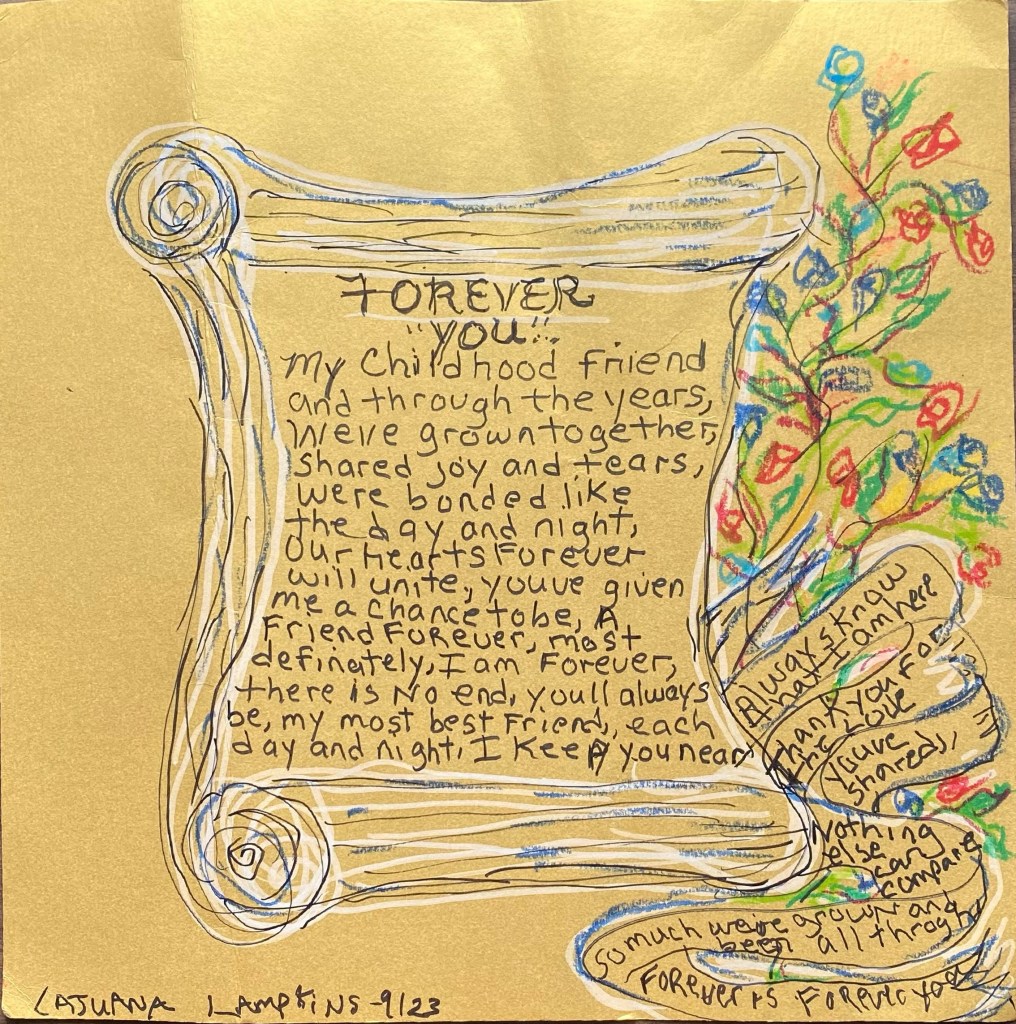 FOREVER
"YOU"..
My Childhood friend
and through the years,
We've grown together,
Shared joy and tears,
Were bonded like
the day and night,
Our Hearts Forever
will unite, youve given
me a chance to be, A
Friend Forever, most
definately, I am Forever,
there is No end, youll always
be, my most best Friend, each
day and night, I Keep you near
Always Know
that I am here
thank you For
the Love
youve
shared,
Nothing
else
can
compare
So much we're grown and
been all throgh
Forever is Forever you
LAJUANA LAMPKINS-9/23